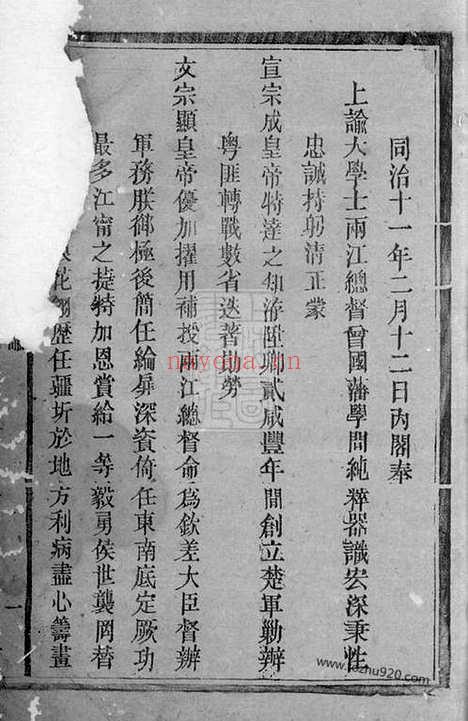 同治十一年二月十二日內閣奉
上諭大學士兩江總督曾國藩學問純粹器識宏深秉性
忠誠持躬清正蒙
宣宗成皇帝特達之知洊陞卿貳咸豐年間創立楚軍勦辦
粵匪轉戰數省迭著勛勞
文宗顯皇帝優加擢用補授兩江總督命爲欽差大臣督辦
軍務朕御極後簡任綸扉深資倚任東南底定厥功
最多江甯之捷特加恩賞給一等毅勇侯世襲罔替
花翎歷任疆圻於地方利病盡心籌畫
一
nayona.cn
www.kozhu920.com